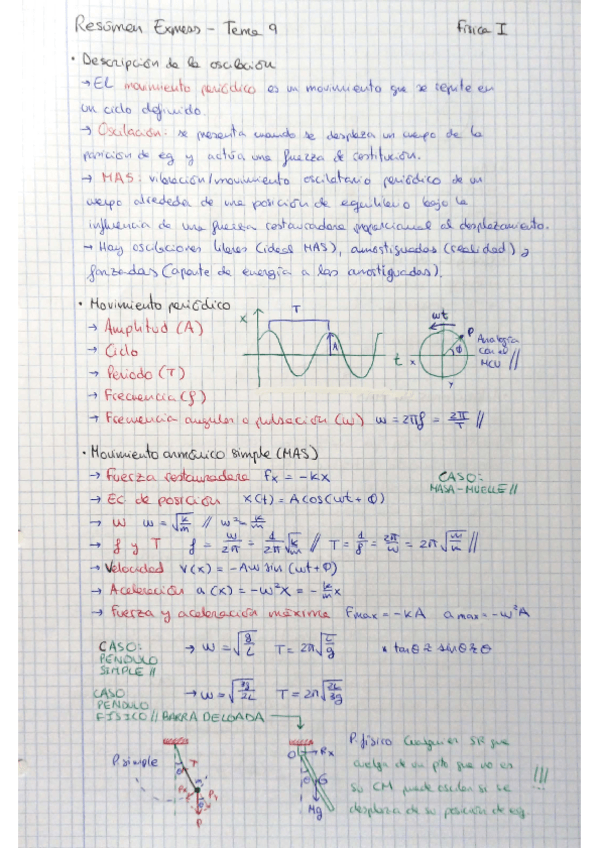 Resúmen Express - Tema 9 Física I
• Descripción de la oscilación
→ El movimiento periódico es un movimiento que se repite en
un ciclo definido.
→ Oscilación: se presenta cuando se desplaza un cuerpo de la
posición de eq y actúa una fuerza de restitución.
→ MAS: vibración/movimiento oscilatorio periódico de un
cuerpo alrededor de una posición de equilibrio bajo la
influencia de una fuerza restauradora proporcional al desplazamiento.
→ Hay oscilaciones libres (ideal MAS), amostiguadas (realidad) y
forzadas (aporte de energía a las amostiguadas).
• Movimiento periódico
→ Amplitud (A)
→ Ciclo
→ Periodo (T)
→ Frecuencia (f)
→ Frecuencia angular o pulsación (ω) ω = 2πf = 2π/T //
x T A t
ωt P Φ x y
Analogía
con el
MCU //
• Movimiento armónico simple (MAS)
→ Fuerza restauradora Fx = -kx
CASO:
MASA-MUELLE //
→ Ec de posición x(t) = A cos(ωt + Φ)
→ ω ω = √k/m // ω² = k/m
→ f y T f = ω/2π = 1/2π √k/m // T = 1/f = 2π/ω = 2π √m/k //
→ Velocidad v(x) = -Aω sin (ωt + Φ)
→ Aceleración a(x) = -ω²x = -k/m x
→ Fuerza y aceleración máxima Fmax = -kA amax = -ω²A
CASO:
PENDULO
SIMPLE //
→ ω = √g/L T = 2π√L/g * tanθ ≈ sinθ ≈ θ
CASO
PENDULO
FISICO // BARRA DELGADA
→ ω = √3g/2L T = 2π√2L/3g
P. simple
θ T P
O Rx θ G Mg
P. físico Cualquier SR que
cuelga de un pto que no es
su CM puede oscilar si se
desplaza de su posición de eq.
!!!